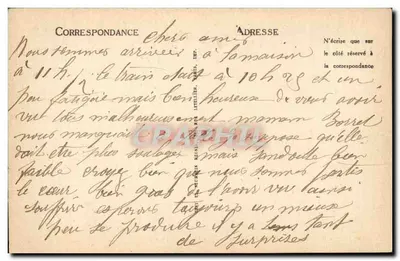 CORRESPONDANCE
ADRESSE
N'écrire que sur
le côté réservé à
la correspondance
chers amis
Nous sommes arrivées à la maison
à 11 h le train était à 10 h 25 et un
peu fatigué mais bien heureuse de vous avoir
vu malheureusement maman Borrel
nous manquait qu'elle
doit être plus soulagée mais sans doute bien
faible croyez bien que nous sommes parties
le cœur bien gros de l'avoir vu ainsi
souffrir espérons toujours un mieux
peu se produire il y a tant
de surprises